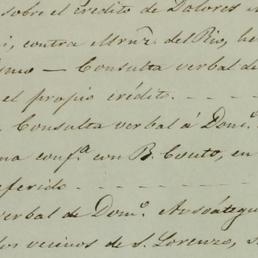 sobre el crédito de Dolores
i, contra Mrnz. del Rio, he
ismo — Consulta verbal de
el propio crédito. - - - -
Consulta verbal á Domo.
na confa. con B. Couto, en
eferido - - - - - - - -
verbal de Domo. Ansoátegui
los vecinos de S. Lorenzo, s